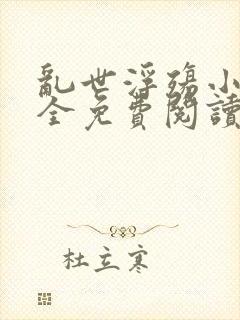 亂世浮殤小
全免費閱讀
杜立寒